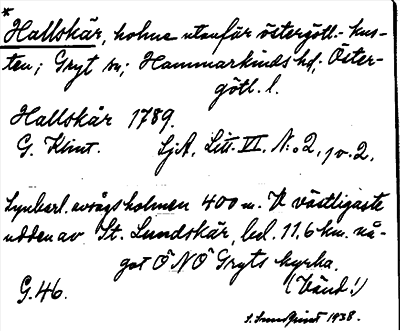 *
Hallskär, holme utanför östergötl.- kus-
ten; Gryt sn; Hammarkinds hd; Öster-
götl. l.
Hallskär 1789.
G. Klint. SjA, Litt. VI, N:o 2, 1 v. 2.
Synbarl. avsågs holmen 400 m. V västligaste
udden av St. Lundskär, bel. 11.6 km. nå-
got ÖNÖ Gryts kyrka.
G. 46. (Vänd!)
S. Sundquist 1938.